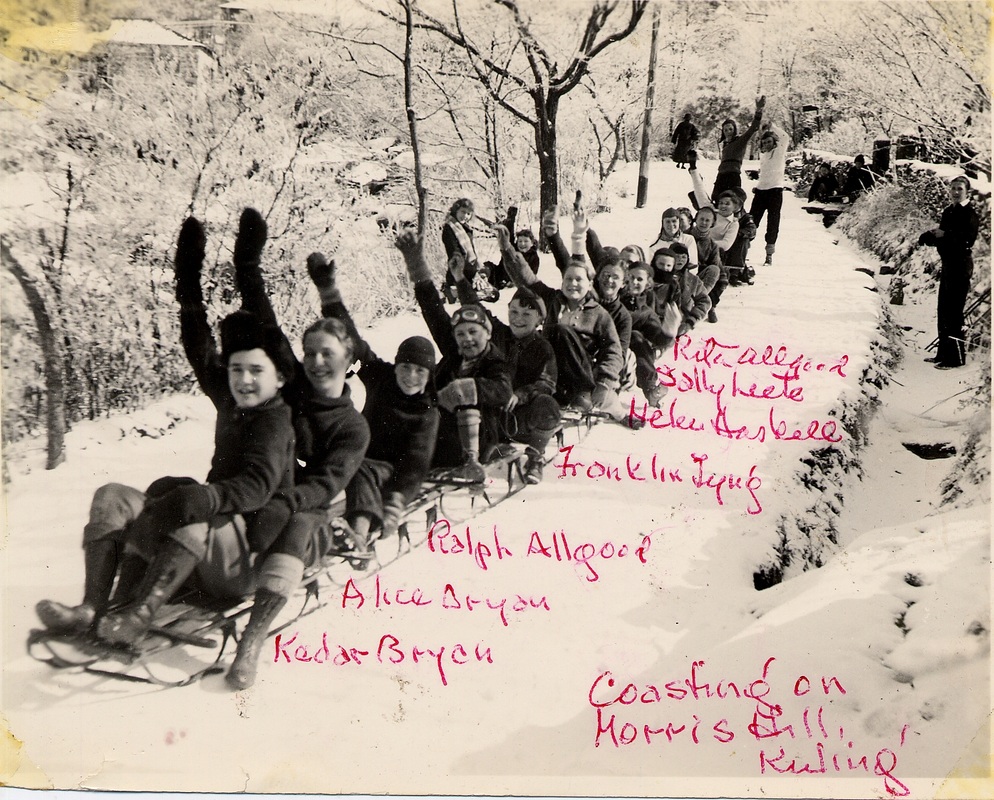 Rita Allgood
Sally Leete
Helen Haskell
Franklin Tyng
Ralph Allgood
Alice Bryan
Kedar Bryan
Coasting on
Morris Hill,
Kuling